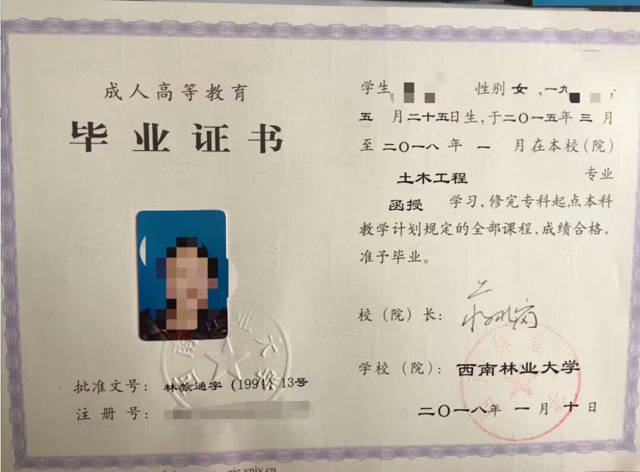 成人高等教育
毕业证书
批准文号：林教通字（1994）13号
注册号：
学生 性别 女，一九
五月二十五日生，于二〇一五年三月
至二〇一八年一月在本校（院）
土木工程 专业
函授 学习，修完专科起点本科
教学计划规定的全部课程，成绩合格，
准予毕业。
校（院）长：
学校（院）：西南林业大学
二〇一八年一月十日